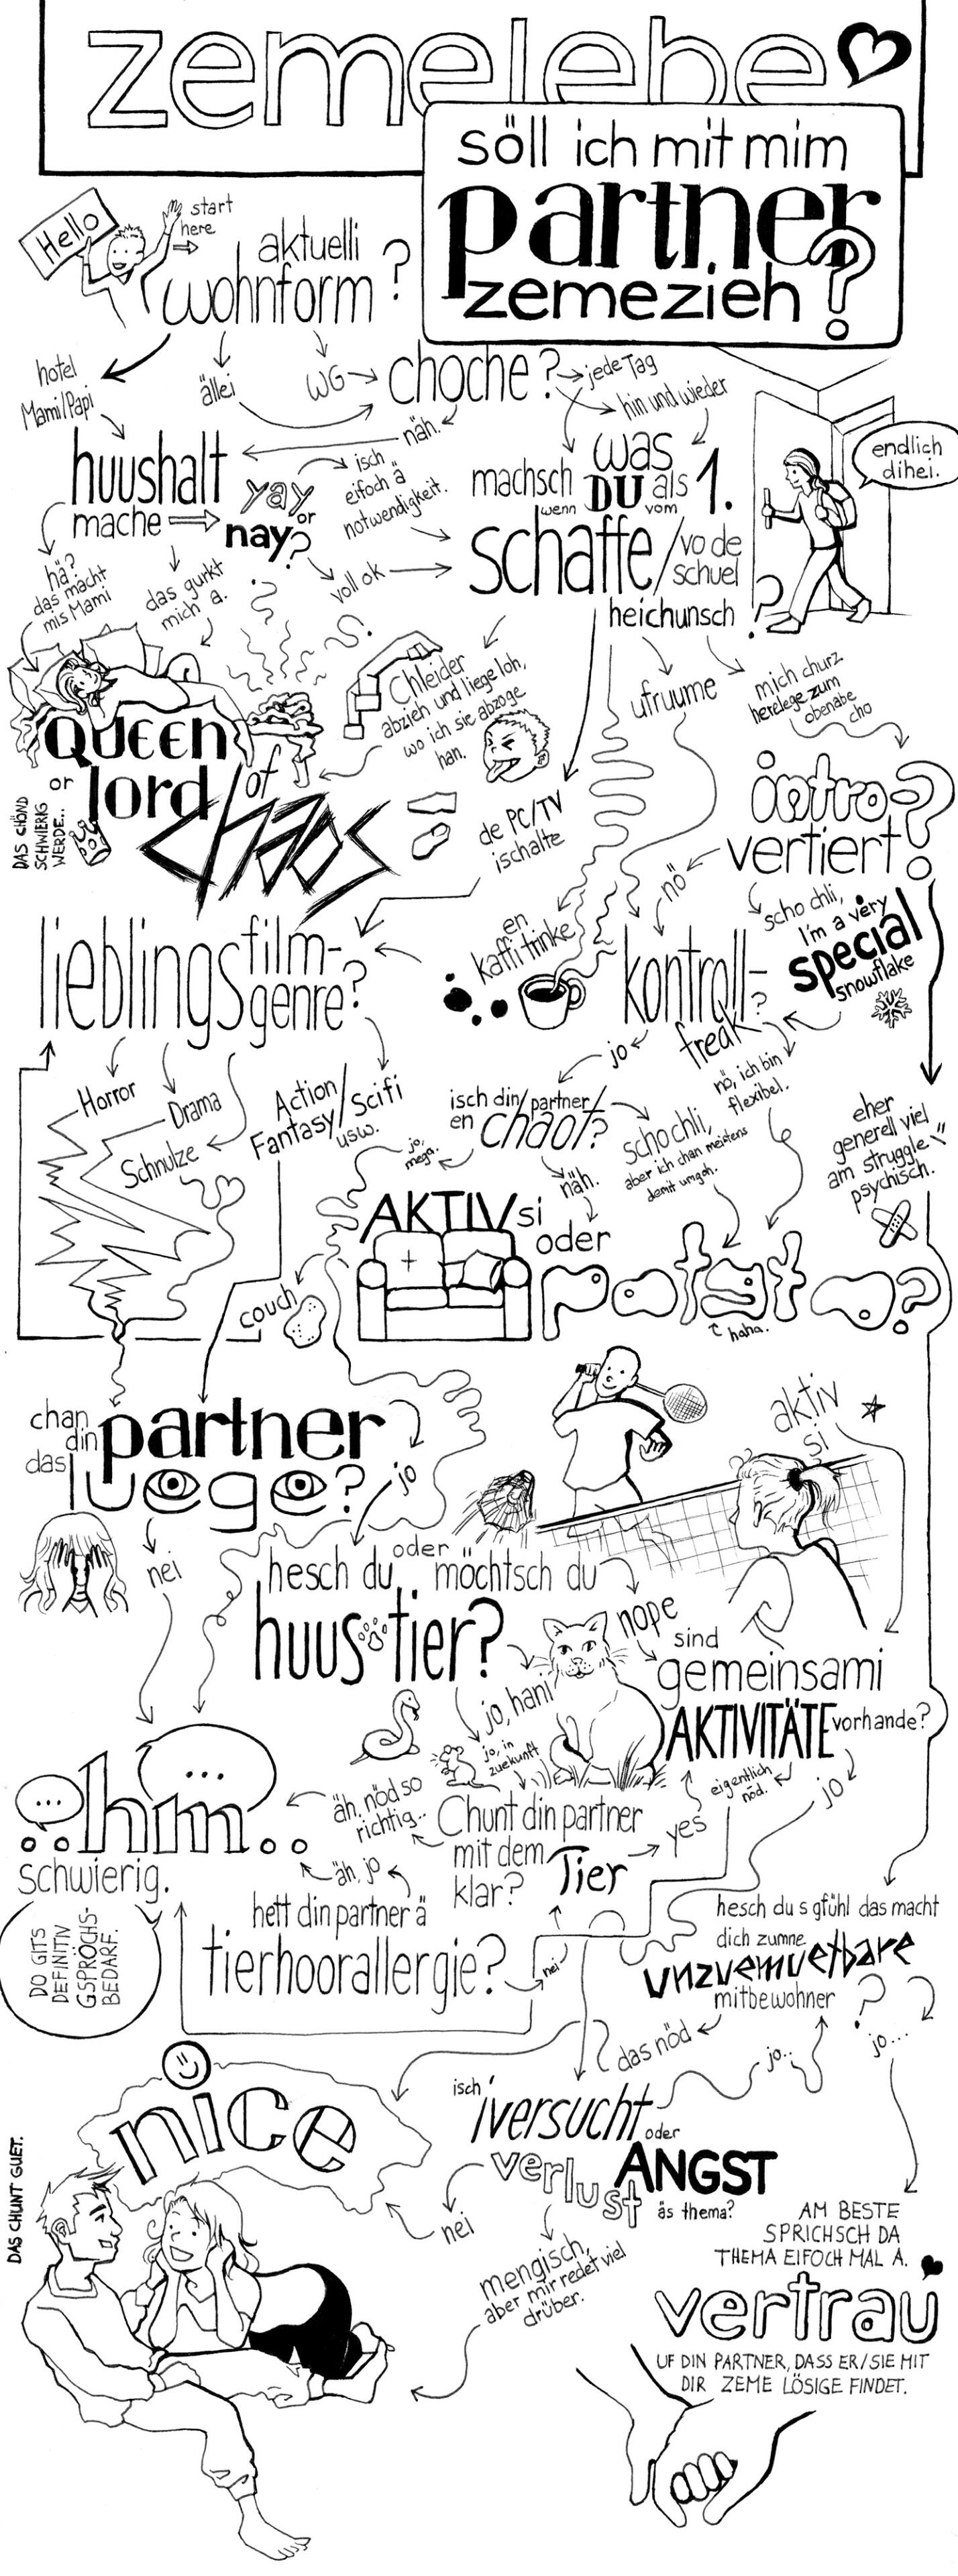 zemelebe
söll ich mit mim
partner
zemezieh?
Hello
start
here
aktuelli
wohnform?
hotel
Mami/Papi
ällei
WG
choche?
jede Tag
hin und wieder
näh.
huushalt
mache
yay
or
nay?
isch
eifoch ä
notwendigkeit.
voll ok
hä?
das macht
mis Mami
das gurkt
mich a.
was
machsch DU als 1.
wenn vom
schaffe/vo de
schuel
heichunsch?
endlich
dihei.
Chleider
abzieh und liege loh,
wo ich sie abzoge
han.
ufruume
mich churz
herelege zum
obenabe
cho
QUEEN
or
lord/of
chaos
DAS CHÖND
SCHWIERIG
WERDE..
de PC/TV
ischalte
intro-
vertiert?
nö
scho chli,
I'm a very
special
snowflake
en
kaffi trinke
lieblingsfilm-
genre?
kontroll-
freak?
jo
nö, ich bin
flexibel.
Horror
Drama
Schnulze
Action/
Fantasy/Scifi
usw.
isch din/partner/
en chaot?
jo,
mega.
näh.
scho chli,
aber ich chan meistens
demit umgoh.
eher
generell viel
am struggle
psychisch.
AKTIV si
oder
couch
potato?
haha.
chan
din partner
das luege?
jo
nei
aktiv
si
hesch du oder möchtsch du
huustier?
nope
jo, hani
jo, in
zuekunft
sind
gemeinsami
AKTIVITÄTE vorhande?
eigentlich
nöd.
jo
...
...
..hm..
schwierig.
äh, nöd so
richtig..
Chunt din partner
mit dem Tier
klar?
yes
äh, jo
hett din partner ä
tierhoorallergie?
nei
DO GITS
DEFINITIV
GSPRÖCHS-
BEDARF.
hesch du s gfühl das macht
dich zumne
unzuemuetbare
mitbewohner?
das nöd
jo..
jo...
nice
DAS CHUNT GUET.
isch
iversucht
oder
verlust ANGST
äs thema?
nei
mengisch,
aber mir redet viel
drüber.
AM BESTE
SPRICHSCH DA
THEMA EIFOCH MAL A.
vertrau
UF DIN PARTNER, DASS ER/SIE MIT
DIR ZEME LÖSIGE FINDET.